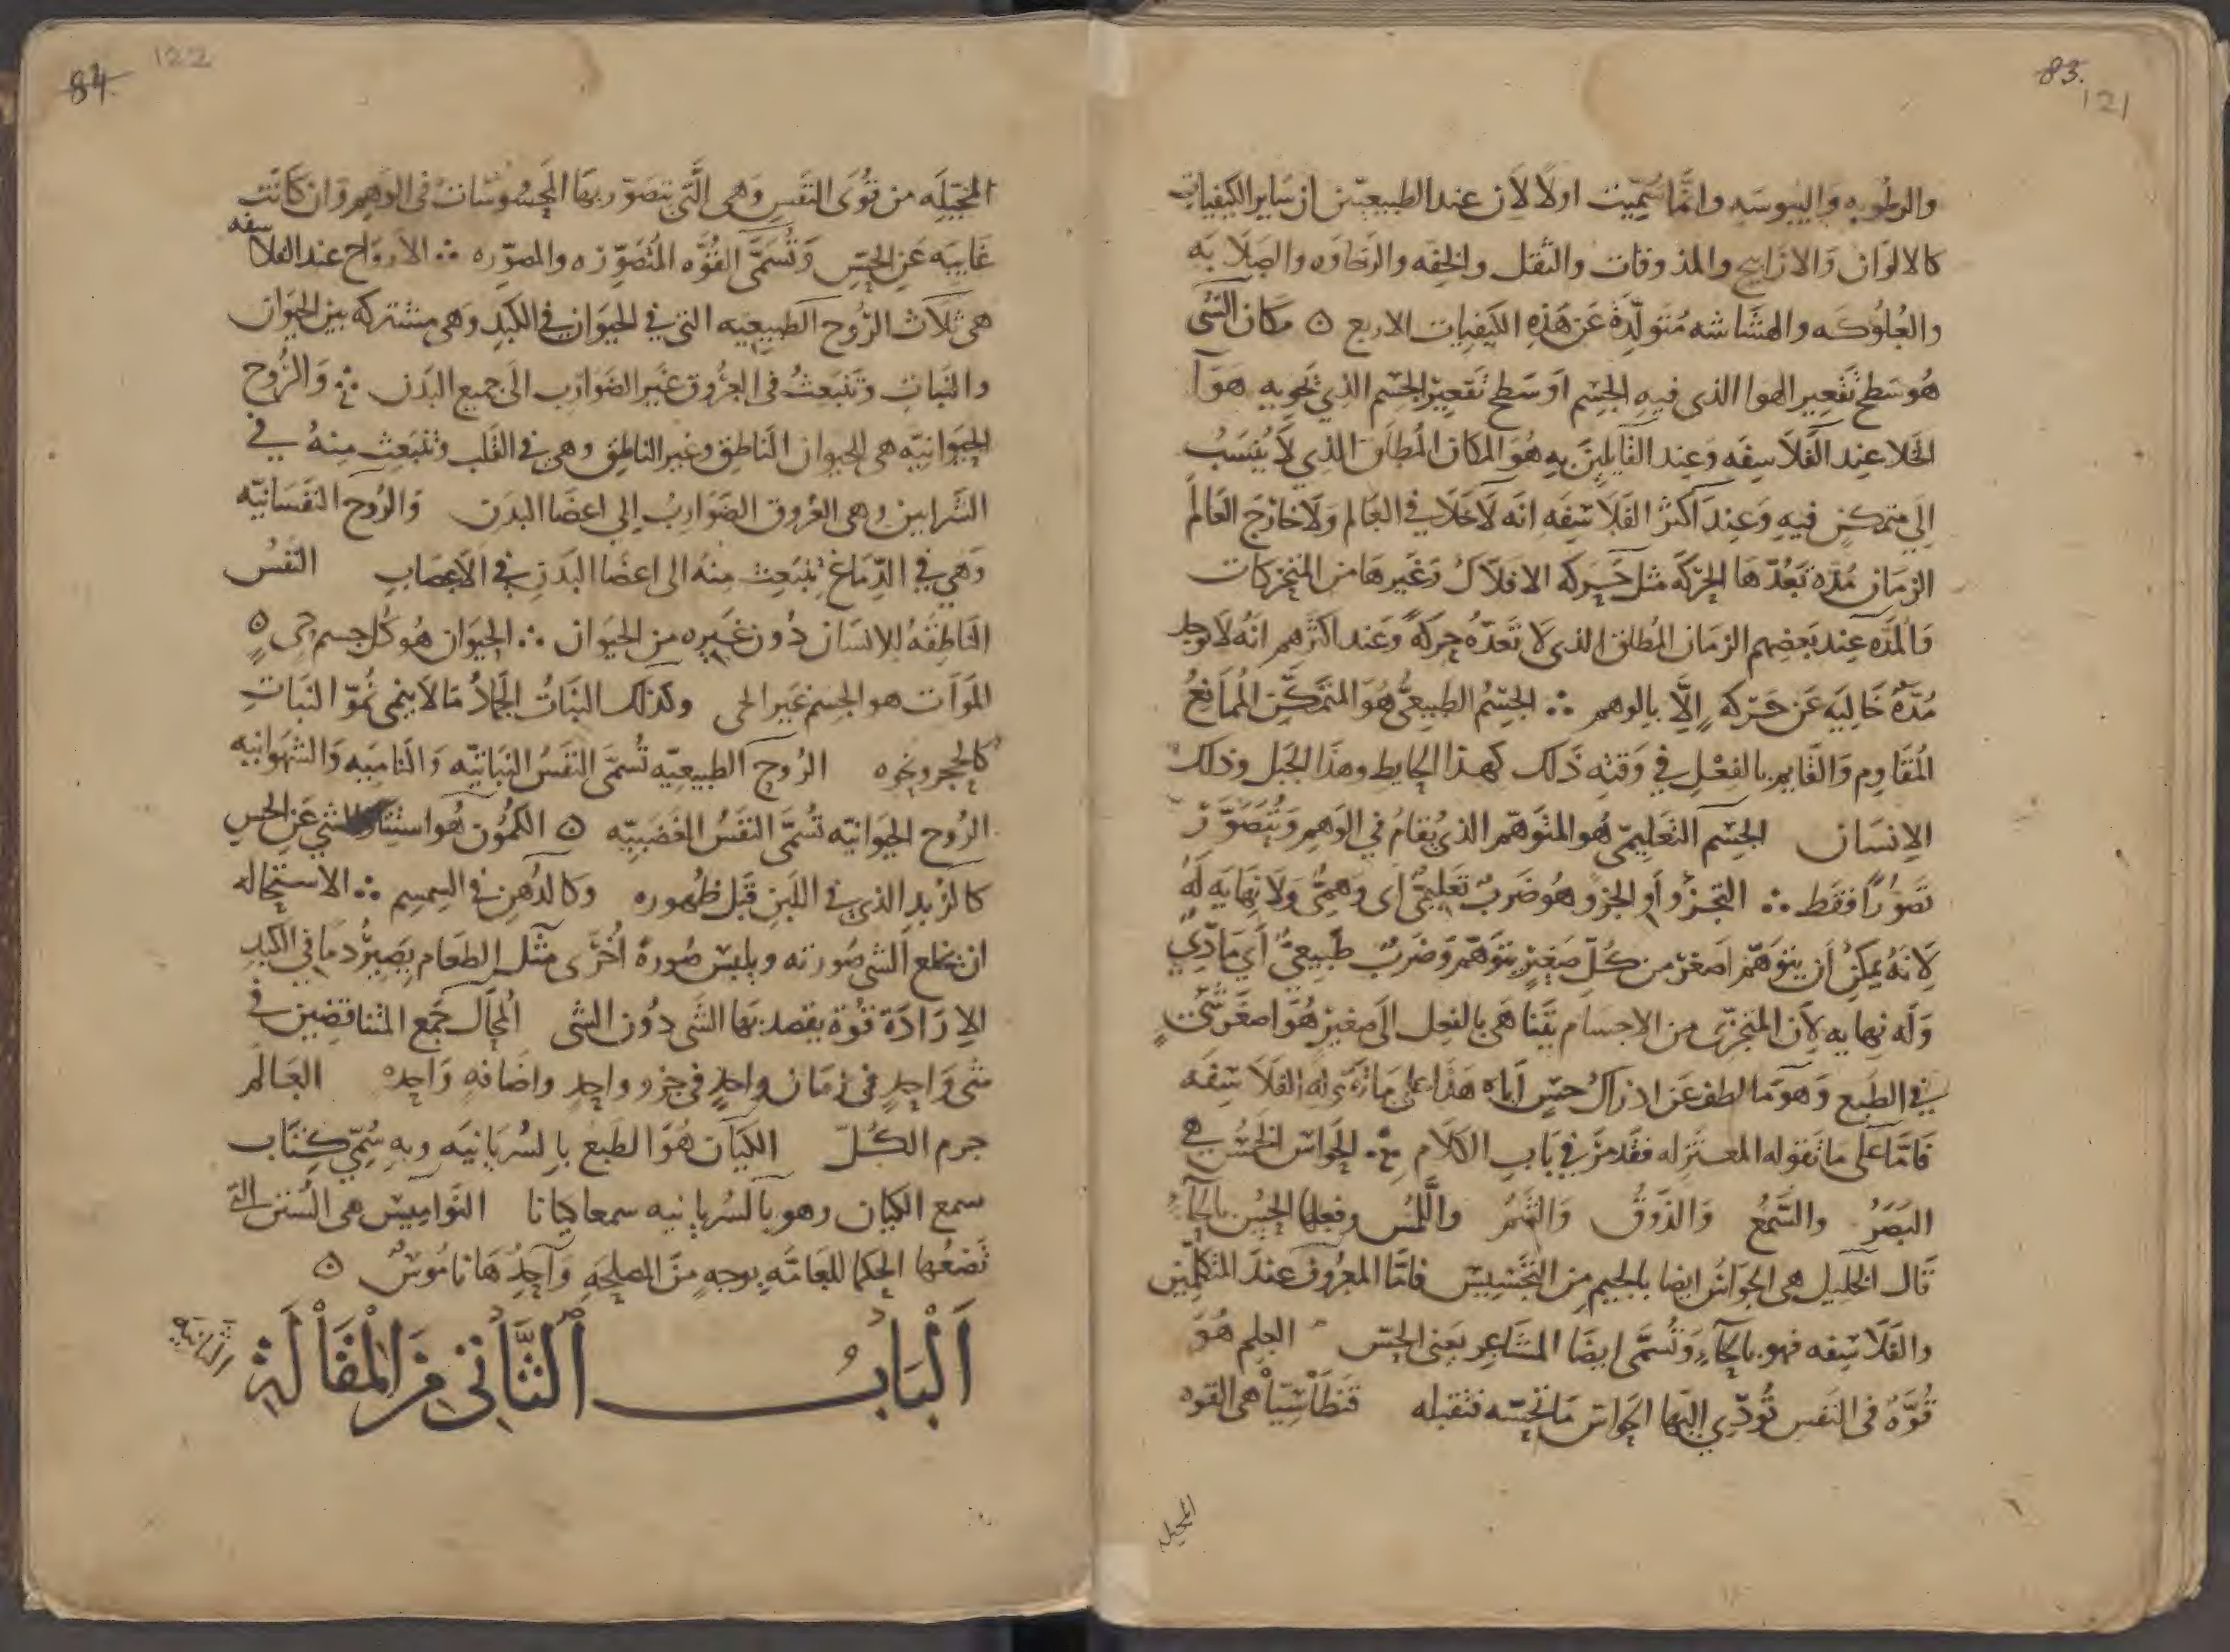 83.
121
والرطوبه واليبوسه وانما سميت اولا لان عند الطبيعيين ان ساير الكيفيات
كالالوان والارابيح والمذوقات والثقل والخفه والرخاوه والصلابه
والعلوكه والهشاشه متولدة عن هذه الكيفيات الاربع ه مكان الشى
هو سطح تقعير الهوا الذى فيه الجسم او سطح تقعير الجسم الذي تحويه هوآ
الخلا عند الفلاسفه وعند القايلين به هو المكان المطلق الذي لا ينسب
الي متمكن فيه وعند اكثر الفلاسفه انه لا خلا في العالم ولا خارج العالم
الزمان مدة تعدها الحركه مثل حركه الافلاك وغيرها من المتحركات
والمده عند بعضهم الزمان المطلق الذى لا تعده حركة وعند اكثرهم انه لا توجد
مدة خاليه عن حركه إلا بالوهم ∴ الجسم الطبيعى هو المتمكن الممانع
المقاوم والقايم بالفعل في وقته ذلك كهذا الحايط وهذا الجبل وذلك
الانسان الجسم التعليمى هو المتوهم الذى يقام في الوهم ويتصور
تصورا فقط ∴ التجزؤ أو الجزو هو ضرب تعليمى اى وهمى ولا نهايه له
لانه يمكن أن يتوهم اصغر من كل صغير يتوهم وضرب طبيعي أي مادي
وله نهايه لان المتجزى من الاجسام يتناهى بالفعل الى صغير هو اصغر شى
في الطبع وهو ما لطف عن ادراك حس اياه هذا على ما تقوله الفلاسفه
فاما على ما تقوله المعتزله فقد مر في باب الكلام ∴ الحواس الخمس هي
البصر والسمع والذوق والشم واللمس وفعلها الحس بالحآء
قال الخليل هى الجواس ايضا بالجيم من التجسيس فاما المعروف عند المتكلمين
والفلاسفه فهو بالحآء وتسمى ايضا المشاعر يعنى الحس الحلم هو
قوة فى النفس تؤدي اليها الحواس ما تحسه فتقبله فنطاسيا هى القوه
المخيله
84
122
المخيله من قوى النفس وهى التى يتصور بها المحسوسات فى الوهم وان كانت
غايبه عن الحس وتسمى القوه المتصوره والمصوره ∴ الارواح عند الفلاسفه
هى ثلاث الروح الطبيعيه التى في الحيوان في الكبد وهى مشتركه بين الحيوان
والنبات وتنبعث فى العروق غير الضوارب الى جميع البدن ∴ والروح
الحيوانيه هى للحيوان الناطق وغير الناطق وهى في القلب وتنبعث منه في
الشرايين وهى العروق الضوارب الى اعضا البدن والروح النفسانيه
وهي في الدماغ تنبعث منه الى اعضا البدن في الاعصاب النفس
الناطقه للانسان دون غيره من الحيوان ∴ الحيوان هو كل جسم حى ه
الموات هو الجسم غير الحى وكذلك النبات الجماد ما لا ينمى نمو النبات
كالحجر ونحوه الروح الطبيعيه تسمى النفس النباتيه والناميه والشهوانيه
الروح الحيوانيه تسمى النفس الغضبيه ه الكمون هو استتار الشي عن الحس
كالزبد الذي في اللبن قبل ظهوره وكالدهن في السمسم ∴ الاستحاله
ان يخلع الشى صورته ويلبس صورة اخرى مثل الطعام يصير دما في الكبد
الارادة قوة يقصد بها الشى دون الشى المحال جمع المتناقضين في
شى واحد فى زمان واحد فى جزو واحد واضافه واحده العالم
جرم الكل الكيان هو الطبع بالسريانيه وبه سمي كتاب
سمع الكيان وهو بالسريانيه سمعا كيانا النواميس هى السنن التى
تضعها الحكما للعامه بوجه من المصلحه واحدها ناموس ه
الباب الثاني من المقالة
الثانية